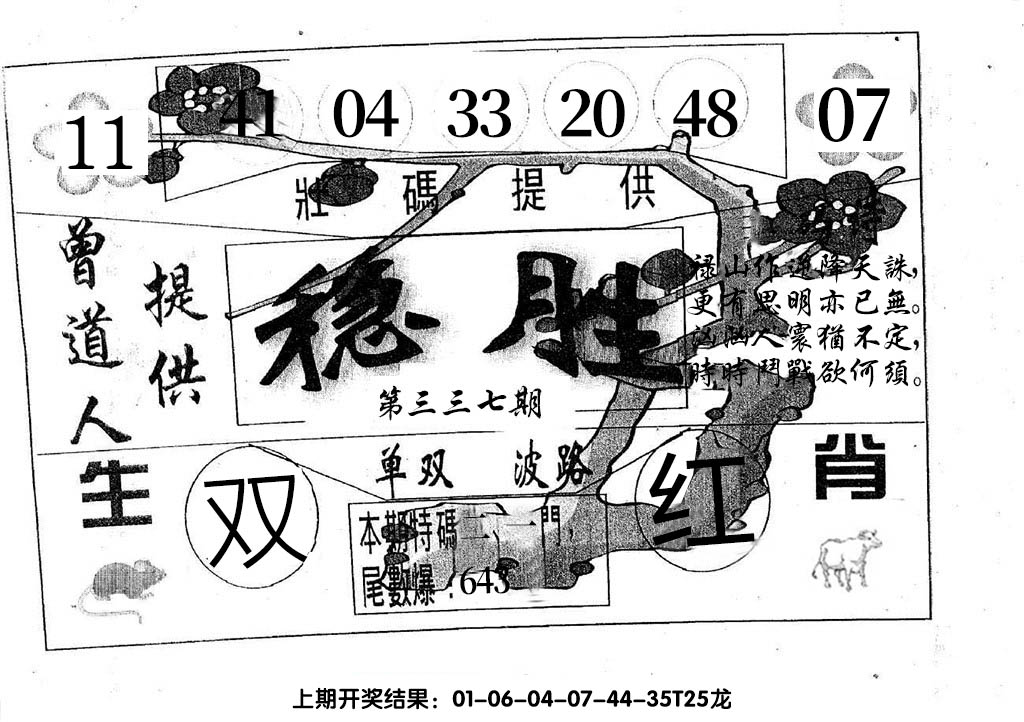 11 41 04 33 20 48 07
壯碼提供
曾道人
提供
穩胜
第三三七期
禄山作逆降天誅，
更有思明亦已無。
人寰猶不定，
時時鬥戰欲何須。
单双 波路
生肖
双 红
本期特碼二、一門，
尾數爆：643
上期开奖结果：01-06-04-07-44-35T25龙